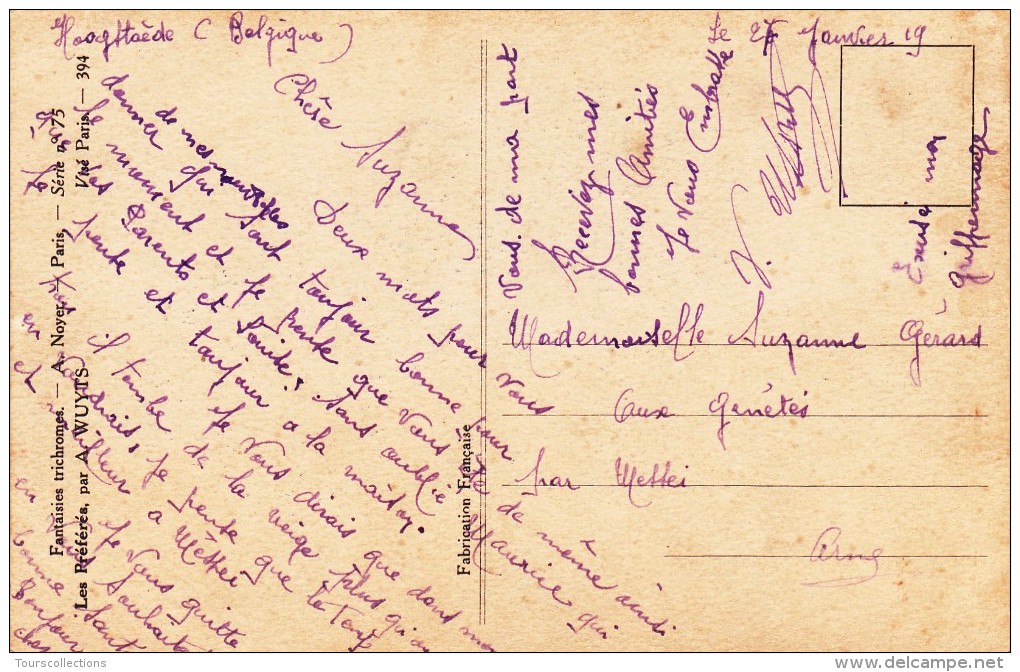 Hoogstaëde (Belgique)
le 27 Janvier 19
Chère Suzanne
Deux mots pour vous
donner de mes nouvelles
qui sont toujour bonne pour
le moment et je pente que vous de même ainsi
que tes Parents et Louise; sans oublié Maurice qui
je pente et toujour a la maison.
je vous dirais que dans mon
il tombe de la neige plus qu'on
en voudrais, je pente que le temp
et meilleur a Mettei
je vous quitte
en vous souhaitant
bonne santé
Bonjour
chez
vous. de ma part
Recevez mes
bonnes Amitiés
je vous Embrasse
Excuse mon
griffonnage
Mademoiselle Suzanne Gérard
aux Genêtes
par Mettei
Fantaisies trichromes. — A. Noyer, Paris. — Série n° 75
Les Préférés, par A. WUYTS
Visé Paris. — 394
Fabrication Française
Tourscollections
delcampe.net